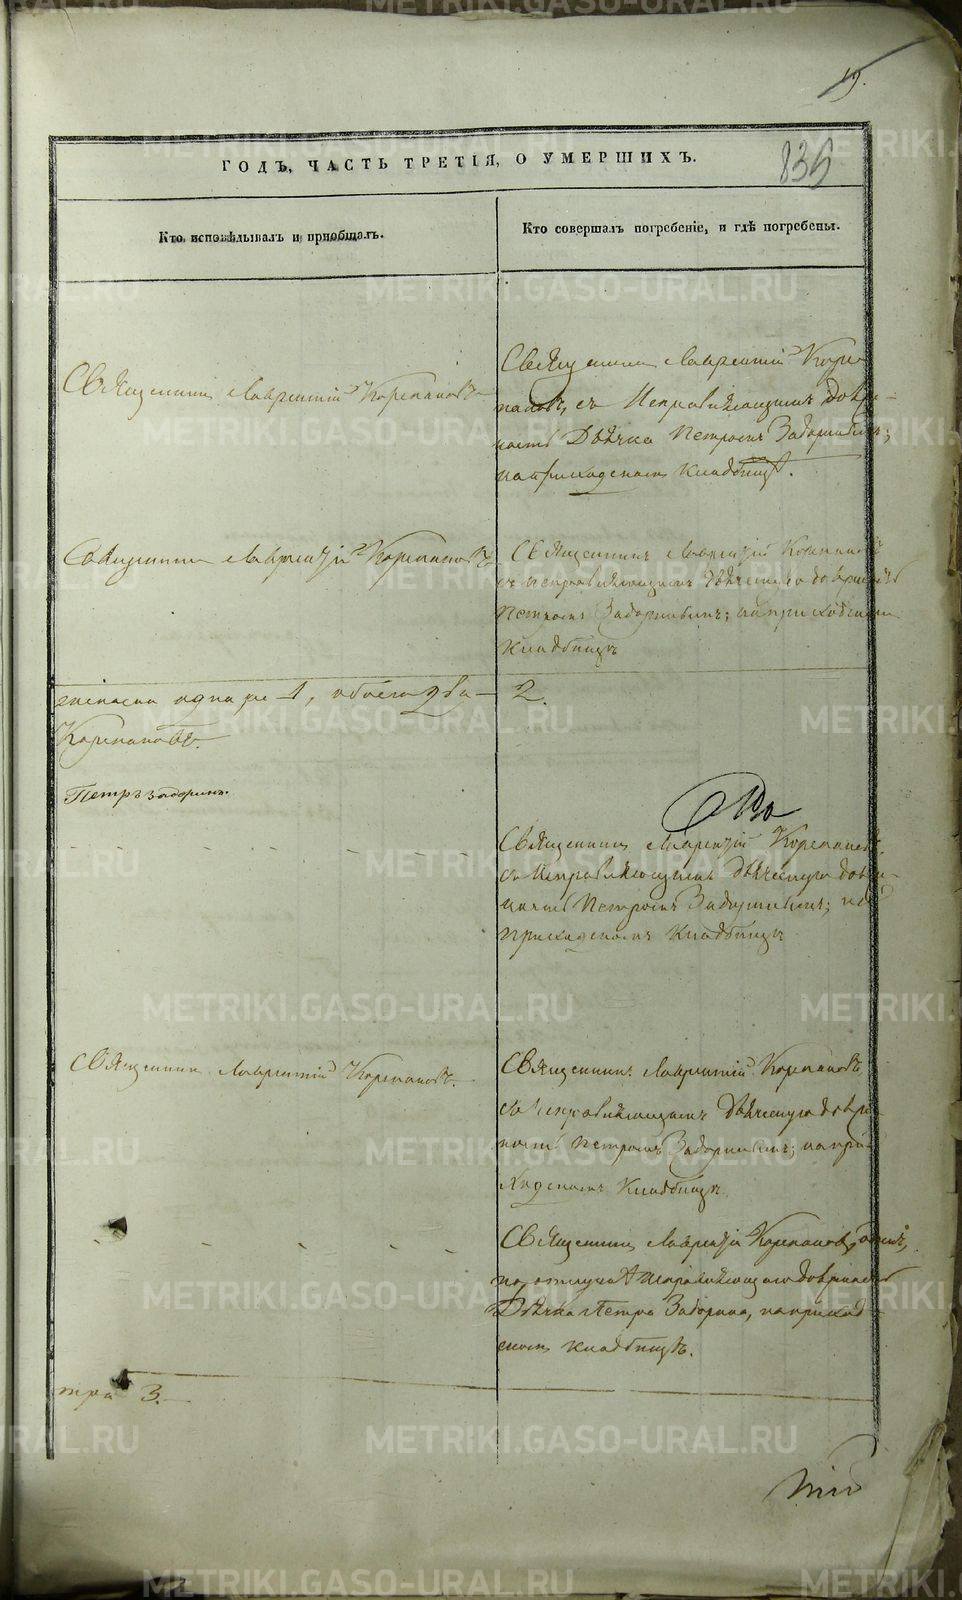 19.
835
ГОДЪ, ЧАСТЬ ТРЕТІЯ, О УМЕРШИХЪ.
Кто исповѣдывалъ и пріобщалъ.
Кто совершалъ погребеніе, и гдѣ погребены.
Священник Лаврентій Корепановъ
Священник Лаврентій Коре-
пановъ, съ Исправляющимъ должность
Дьячка Петромъ Задоринымъ;
на приходскомъ кладбищѣ.
Священник Лаврентій Корепановъ
Священникъ Лаврентій Корепановъ
съ исправляющимъ дьяческую должность
Петромъ Задоринымъ; на приходскомъ
кладбищѣ
женска одна 1, обоего два
2.
Корепановъ.
Петръ Задоринъ.
Священник Лаврентій Корепановъ
съ Исправляющимъ дьяческую долж-
ность Петромъ Задоринымъ; на
приходскомъ кладбищѣ
Священник Лаврентій Корепановъ.
Священникъ Лаврентій Корепановъ,
съ Исправляющимъ дьяческую долж-
ность Петромъ Задоринымъ; на при-
ходскомъ кладбищѣ
Священник Лаврентій Корепановъ, одинъ,
по отлучкѣ Исправляющаго должность
Дьячка Петра Задорина, на приход-
скомъ кладбищѣ.
три 3.
METRIKI.GASO-URAL.RU